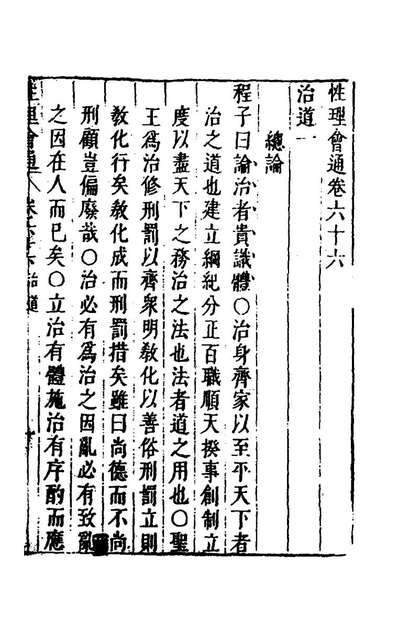 性理會通卷六十六
治道一
總論
程子曰論治者貴識體〇治身齊家以至平天下者
治之道也建立綱紀分正百職順天揆事創制立
度以盡天下之務治之法也法者道之用也〇聖
王爲治修刑罰以齊衆明敎化以善俗刑罰立則
敎化行矣敎化成而刑罰措矣雖曰尚德而不尚
刑顧豈偏廢哉〇治必有爲治之因亂必有致亂
之因在人而已矣〇立治有體施治有序酌而應
性理會通 卷六十六 治道